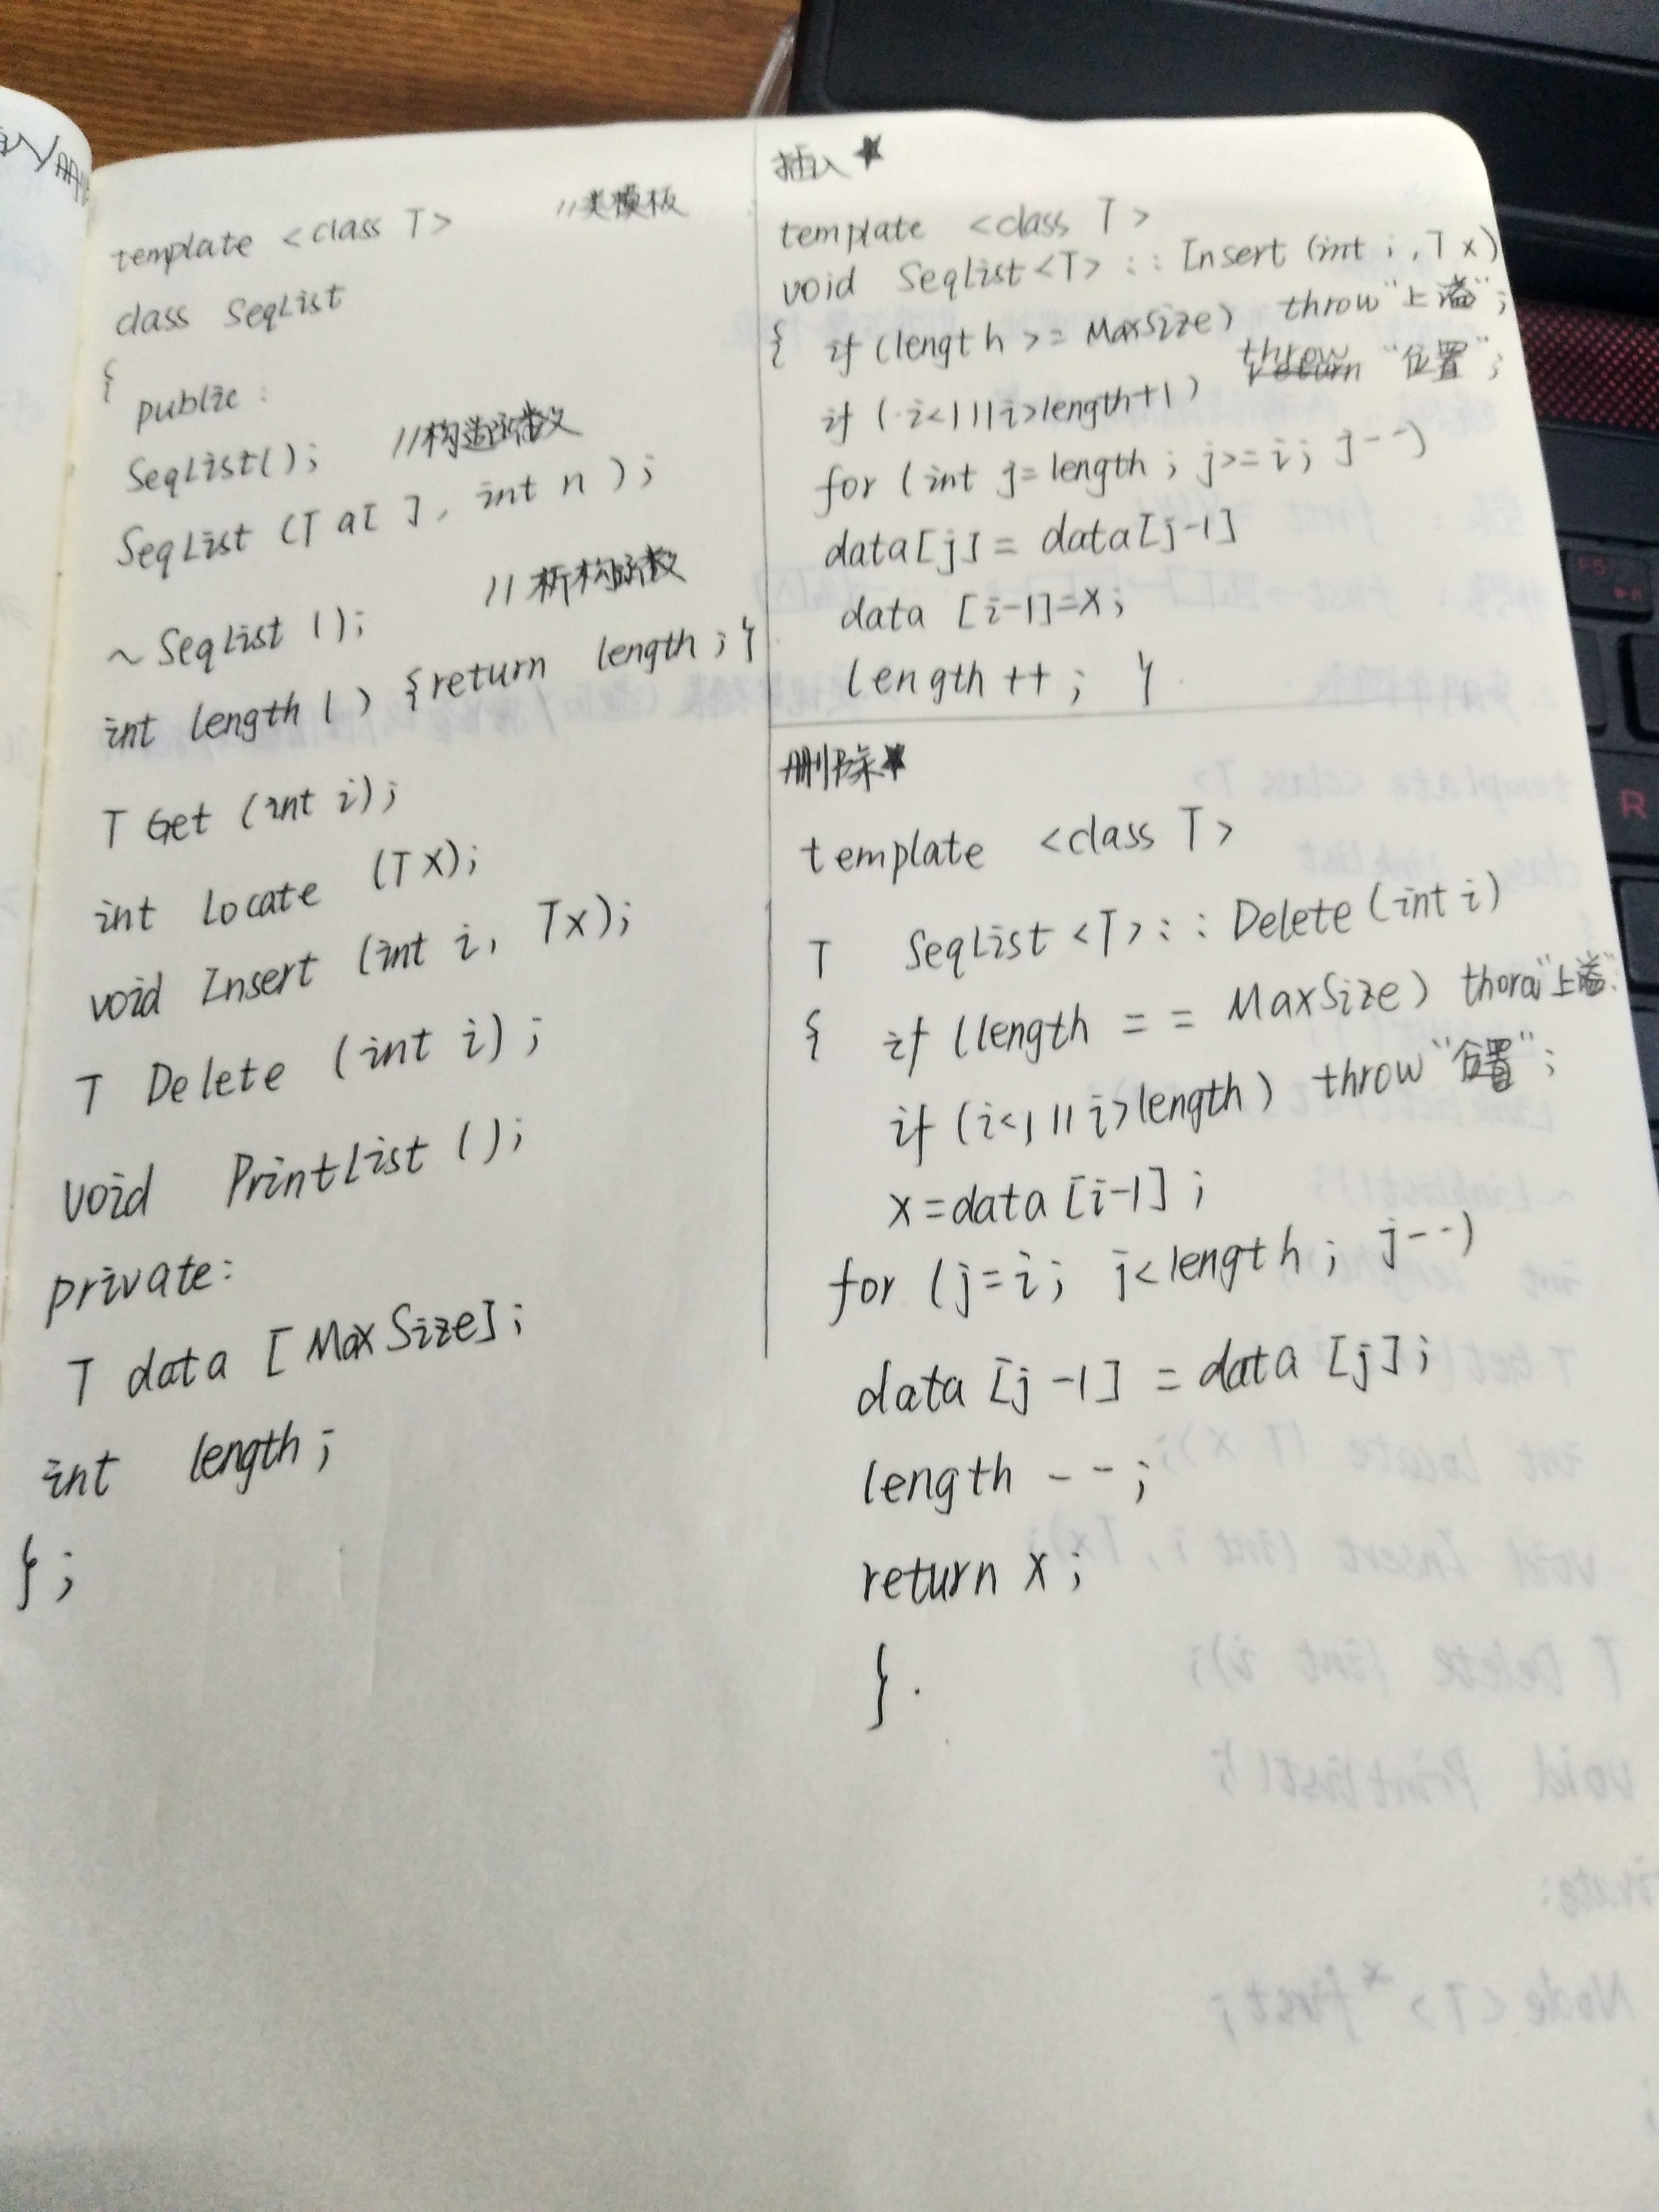 template <class T> //类模板
class SeqList
{
public:
SeqList(); //构造函数
SeqList (T a[ ], int n );
~SeqList (); //析构函数
int length () {return length;}
T Get (int i);
int Locate (T x);
void Insert (int i, T x);
T Delete (int i);
void PrintList ();
private:
T data [MaxSize];
int length;
};
插入★
template <class T>
void SeqList<T>::Insert (int i, T x)
{ if (length >= MaxSize) throw "上溢";
if (i<1||i>length+1) throw "位置";
for (int j=length; j>=i; j--)
data[j] = data[j-1]
data [i-1]=x;
length++; }
删除★
template <class T>
T SeqList <T>::Delete (int i)
{ if (length == MaxSize) "上溢"
if (i<1||i>length) throw "位置";
x=data [i-1];
for (j=i; j<length; j--)
data [j-1] = data [j];
length --;
return x;
}.
F5
R